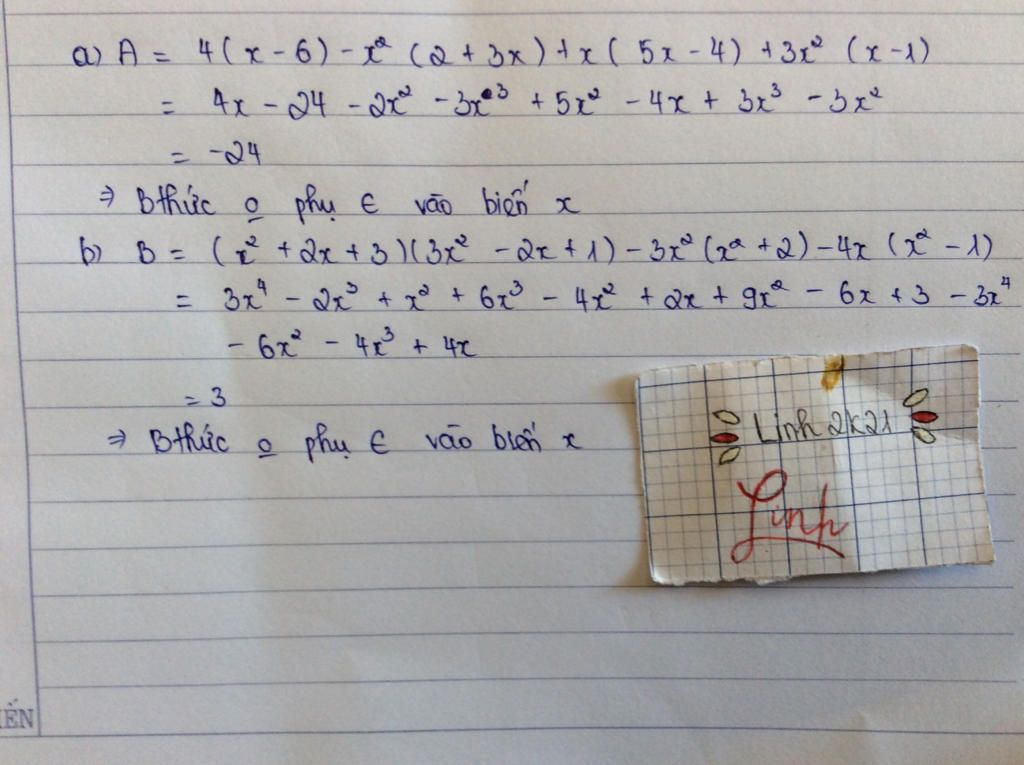 a) A = 4(x - 6) - x² (2 + 3x) + x( 5x - 4) + 3x² (x - 1)
= 4x - 24 - 2x² - 3x³ + 5x² - 4x + 3x³ - 3x²
= -24
⇒ Bthức o phụ ∈ vào biến x
b) B = (x² + 2x + 3)(3x² - 2x + 1) - 3x² (x² + 2) - 4x (x² - 1)
= 3x⁴ - 2x³ + x² + 6x³ - 4x² + 2x + 9x² - 6x + 3 - 3x⁴
- 6x² - 4x³ + 4x
= 3
⇒ Bthức o phụ ∈ vào biến x
Linh 2k21
Linh
IẾN